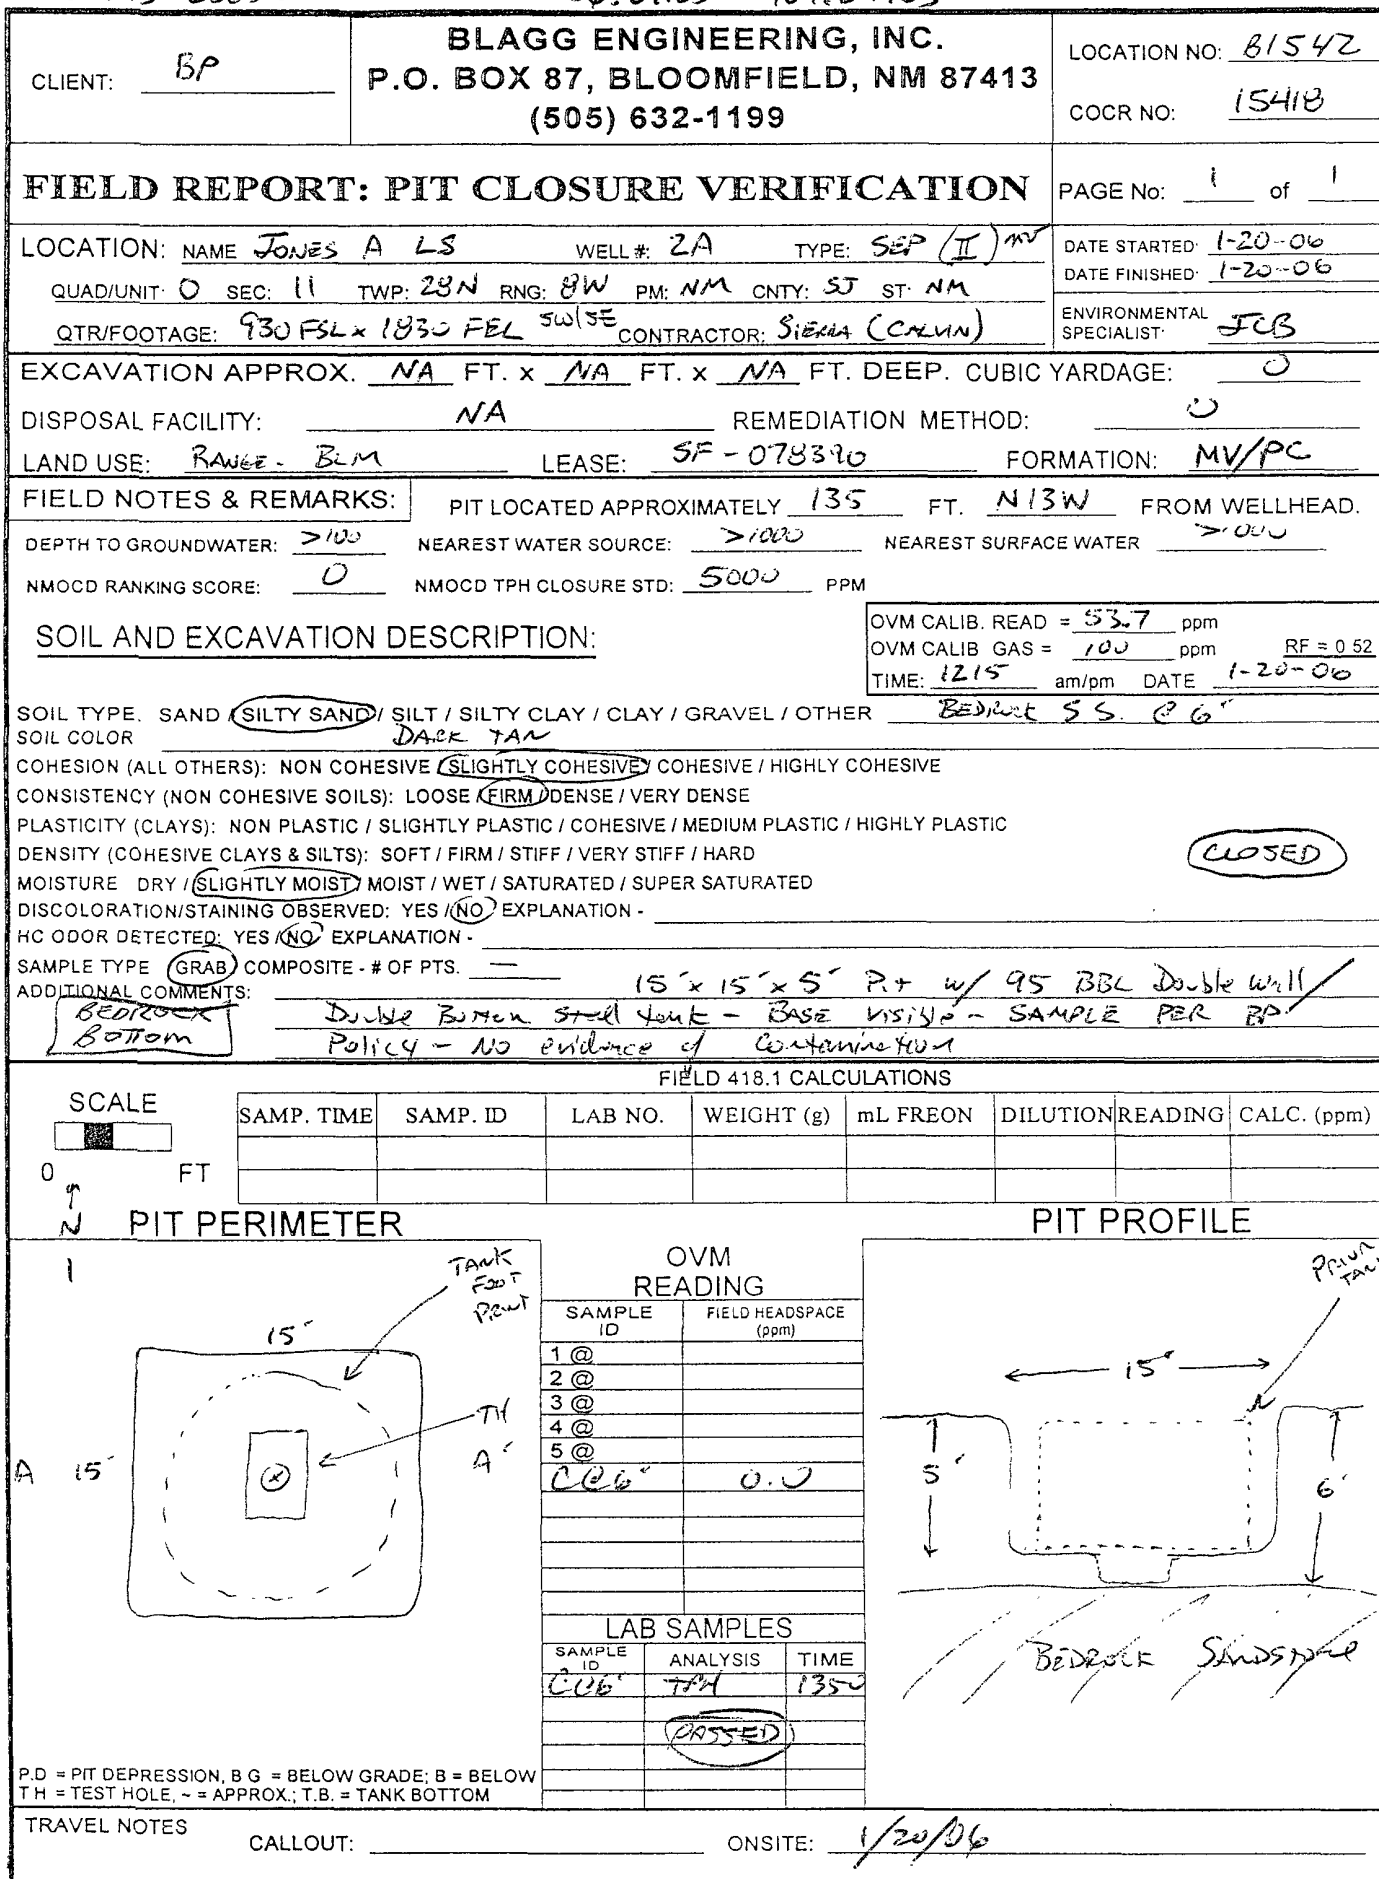 BLAGG ENGINEERING, INC.
P.O. BOX 87, BLOOMFIELD, NM 87413
(505) 632-1199
CLIENT: BP
LOCATION NO: B1542
COCR NO: 15418
FIELD REPORT: PIT CLOSURE VERIFICATION
PAGE No: 1 of 1
LOCATION: NAME JONES A LS WELL #: 2A TYPE: SEP (II) MV
QUAD/UNIT: O SEC: 11 TWP: 28N RNG: 8W PM: NM CNTY: SJ ST: NM
QTR/FOOTAGE: 930 FSL x 1830 FEL SW/SE CONTRACTOR: SIERRA (CALVIN)
DATE STARTED: 1-20-06
DATE FINISHED: 1-20-06
ENVIRONMENTAL
SPECIALIST: JCB
EXCAVATION APPROX. NA FT. x NA FT. x NA FT. DEEP. CUBIC YARDAGE: 0
DISPOSAL FACILITY: NA REMEDIATION METHOD:
LAND USE: RANGE - BLM LEASE: SF - 078390 FORMATION: MV/PC
FIELD NOTES & REMARKS: PIT LOCATED APPROXIMATELY 135 FT. N13W FROM WELLHEAD.
DEPTH TO GROUNDWATER: >100 NEAREST WATER SOURCE: >1000 NEAREST SURFACE WATER >1000
NMOCD RANKING SCORE: 0 NMOCD TPH CLOSURE STD: 5000 PPM
SOIL AND EXCAVATION DESCRIPTION:
OVM CALIB. READ = 53.7 ppm
OVM CALIB GAS = 100 ppm RF = 0 52
TIME: 1215 am/pm DATE 1-20-06
SOIL TYPE. SAND / SILTY SAND / SILT / SILTY CLAY / CLAY / GRAVEL / OTHER BEDROCK SS. @ 6'
SOIL COLOR DARK TAN
COHESION (ALL OTHERS): NON COHESIVE / SLIGHTLY COHESIVE / COHESIVE / HIGHLY COHESIVE
CONSISTENCY (NON COHESIVE SOILS): LOOSE / FIRM / DENSE / VERY DENSE
PLASTICITY (CLAYS): NON PLASTIC / SLIGHTLY PLASTIC / COHESIVE / MEDIUM PLASTIC / HIGHLY PLASTIC
DENSITY (COHESIVE CLAYS & SILTS): SOFT / FIRM / STIFF / VERY STIFF / HARD
CLOSED
MOISTURE DRY / SLIGHTLY MOIST / MOIST / WET / SATURATED / SUPER SATURATED
DISCOLORATION/STAINING OBSERVED: YES / NO EXPLANATION -
HC ODOR DETECTED: YES / NO EXPLANATION -
SAMPLE TYPE GRAB / COMPOSITE - # OF PTS. —
ADDITIONAL COMMENTS: 15' x 15' x 5' Pit w/ 95 BBL Double Wall/
Double Bottom Steel tank - BASE visible - SAMPLE PER BP
Policy - No evidence of Contamination
BEDROCK
BOTTOM
FIELD 418.1 CALCULATIONS
SCALE
0 FT
SAMP. TIME SAMP. ID LAB NO. WEIGHT (g) mL FREON DILUTION READING CALC. (ppm)
N PIT PERIMETER
PIT PROFILE
TANK
FOOT
PRINT
15'
TH
A 15' A'
OVM
READING
SAMPLE ID FIELD HEADSPACE (ppm)
1 @
2 @
3 @
4 @
5 @
C@6' 0.0
LAB SAMPLES
SAMPLE ID ANALYSIS TIME
C@6' TPH 1350
PASSED
PRIOR
TANK
15'
5'
6'
BEDROCK SANDSTONE
P.D = PIT DEPRESSION, B G = BELOW GRADE; B = BELOW
T H = TEST HOLE, ~ = APPROX.; T.B. = TANK BOTTOM
TRAVEL NOTES
CALLOUT: ONSITE: 1/20/06